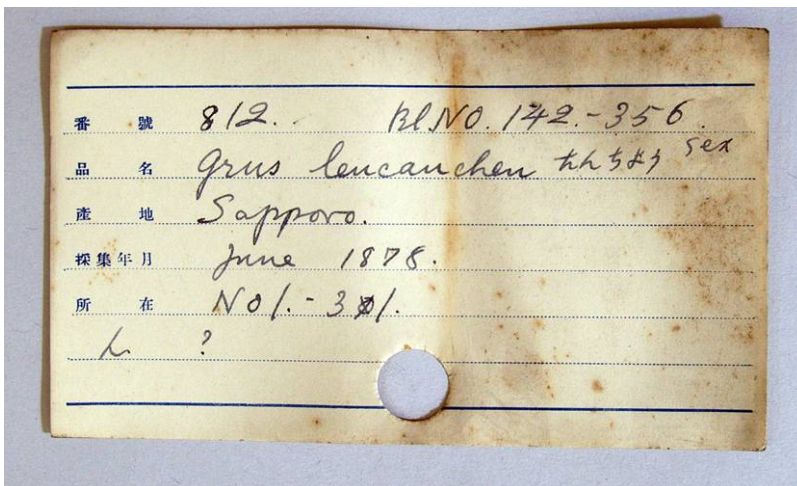 番號 812. Bl NO. 142.-356.
品名 Grus leucauchen たんちよう sex
產地 Sapporo.
採集年月 June 1878.
所在 NO 1.-301.
?